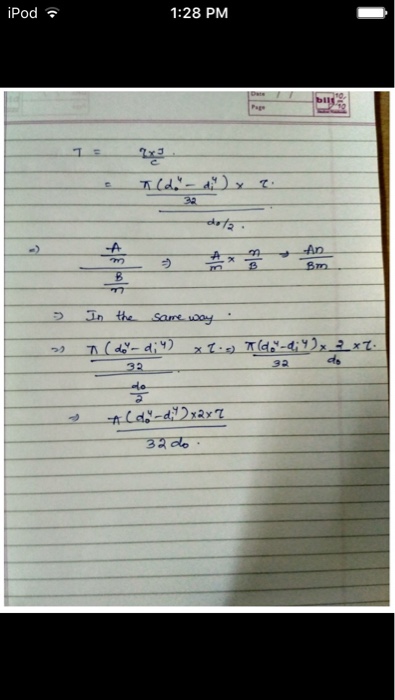 iPod 1:28 PM
Date / /
Page
T = τ×J/c .
= π(do⁴ - di⁴)/32 × τ. / do/2 .
=) A/m / B/n ⇒ A/m × n/B → An/Bm
⇒ In the same way .
⇒) π(do⁴-di⁴)/32 / do/2 × τ. ⇒) π(do⁴-di⁴)/32 × 2/do × τ.
⇒ π(do⁴-di⁴)×2×τ / 32do .